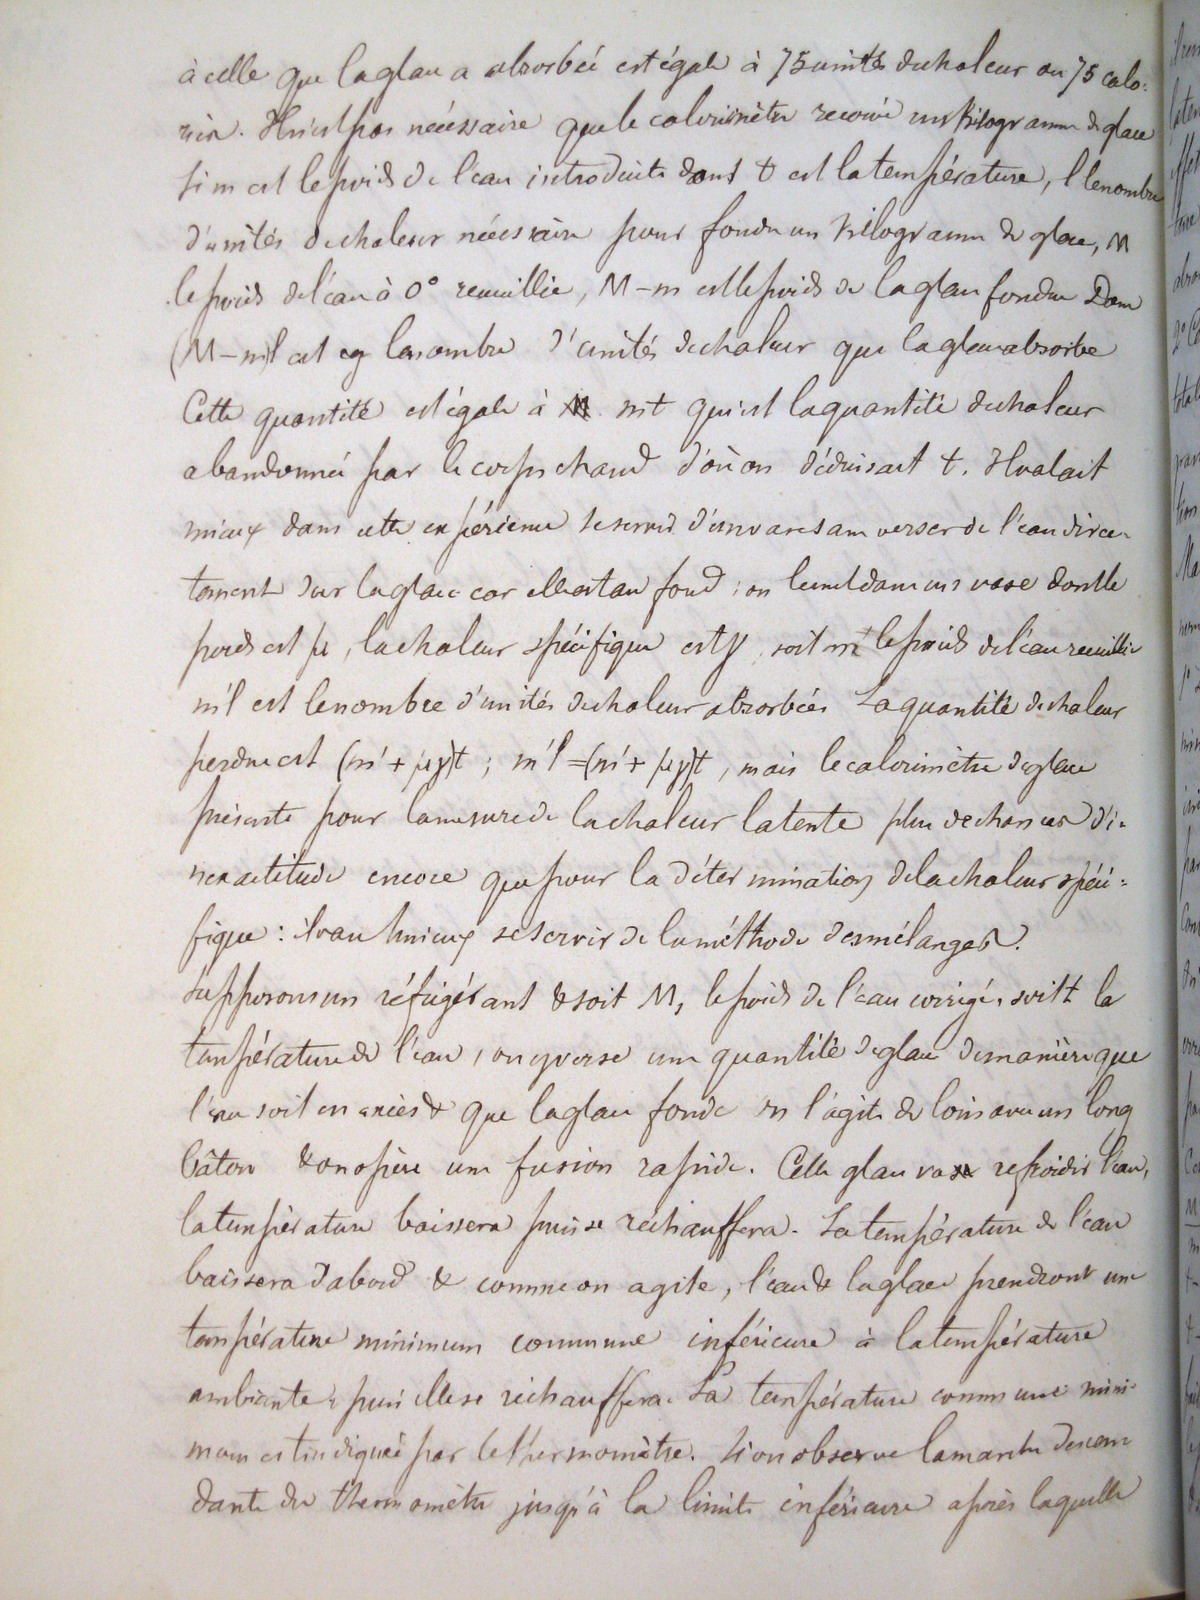 à celle que la glace a absorbée est égale à 75 unités de chaleur ou 75 calo-
ries. Il n'est pas nécessaire que le calorimètre reçoive un kilogramme de glace
Si m est le poids de l'eau introduite dont t est la température, l le nombre
d'unités de chaleur nécessaire pour fondre un kilogramme de glace, M
le poids de l'eau à 0° recueillie, M-m est le poids de la glace fondue Donc
(M-m)l est le nombre d'unités de chaleur que la glace absorbe
Cette quantité est égale à mt qui est la quantité de chaleur
abandonnée par le corps chaud d'où on déduisait t. Il valait
mieux dans cette expérience se servir d'un vase sans verser de l'eau direc-
tement sur la glace car elle est au fond ; on le met dans un vase dont le
poids est μ, la chaleur spécifique est γ, soit m' le poids de l'eau recueillie
m'l est le nombre d'unités de chaleur absorbées La quantité de chaleur
perdue est (m' + μγ)t ; m'l = (m' + μγ)t, mais le calorimètre de glace
présente pour la mesure de la chaleur latente plus de chances d'i-
nexactitude encore que pour la détermination de la chaleur spéci-
fique : il vaut mieux se servir de la méthode des mélanges.
Supposons un réfrigérant & soit M, le poids de l'eau corrigé, soit t la
température de l'eau, on y verse une quantité de glace de manière que
l'eau soit en excès & que la glace fonde on l'agite de loin avec un long
bâton & on opère une fusion rapide. Cette glace va refroidir l'eau,
la température baissera puis se réchauffera. La température de l'eau
baissera d'abord & comme on agite, l'eau & la glace prendront une
température minimum commune inférieure à la température
ambiante ; puis elle se réchauffera. La température commune mini-
mum est indiquée par le thermomètre. Si on observe la marche descen
dante du thermomètre jusqu'à la limite inférieure après laquelle